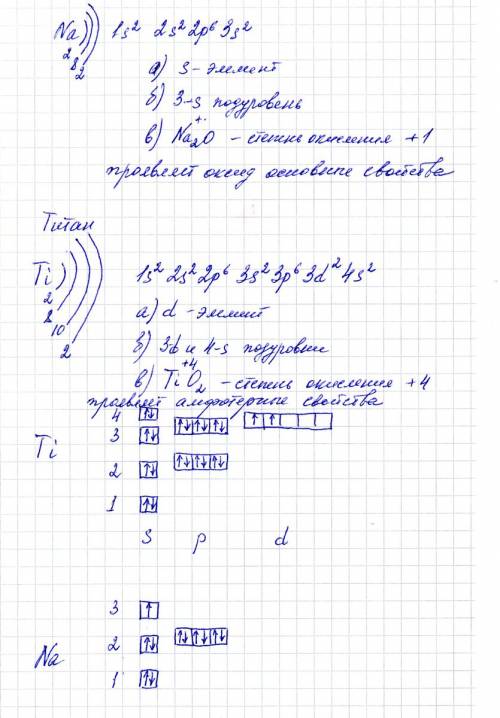 Na))) 1s² 2s² 2p⁶ 3s²
2 8 2
а) s-элемент
б) 3-s подуровень
в) Na₂⁺O - степень окисления +1
проявляет оксид основные свойства
Титан
Ti)))) 1s² 2s² 2p⁶ 3s² 3p⁶ 3d² 4s²
2 8 10 2
а) d-элемент
б) 3d и 4-s подуровни
в) Ti⁺⁴O₂ - степень окисления +4
проявляет амфотерные свойства
4 ↑↓
3 ↑↓ ↑↓ ↑↓ ↑↓ ↑ ↑
Ti
2 ↑↓ ↑↓ ↑↓ ↑↓
1 ↑↓
s p d
3 ↑
2 ↑↓ ↑↓ ↑↓ ↑↓
Na
1 ↑↓